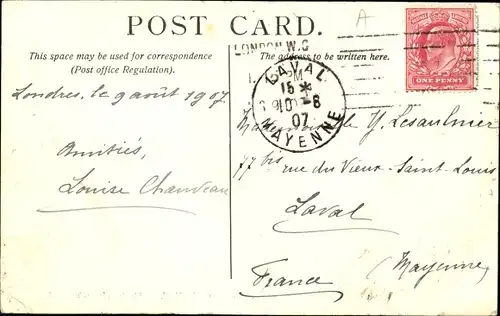 POST CARD.
This space may be used for correspondence
(Post office Regulation).
The address to be written here.
A
LONDON W.C
POSTAGE REVENUE
ONE PENNY
LAVAL
15 *
10 - 8
07
MAYENNE
Londres, le 9 août 1907
Amitiés,
Louise Chauveau
Mademoiselle Y. Lesaulnier
77 bis rue du Vieux-Saint-Louis
Laval
Mayenne
France